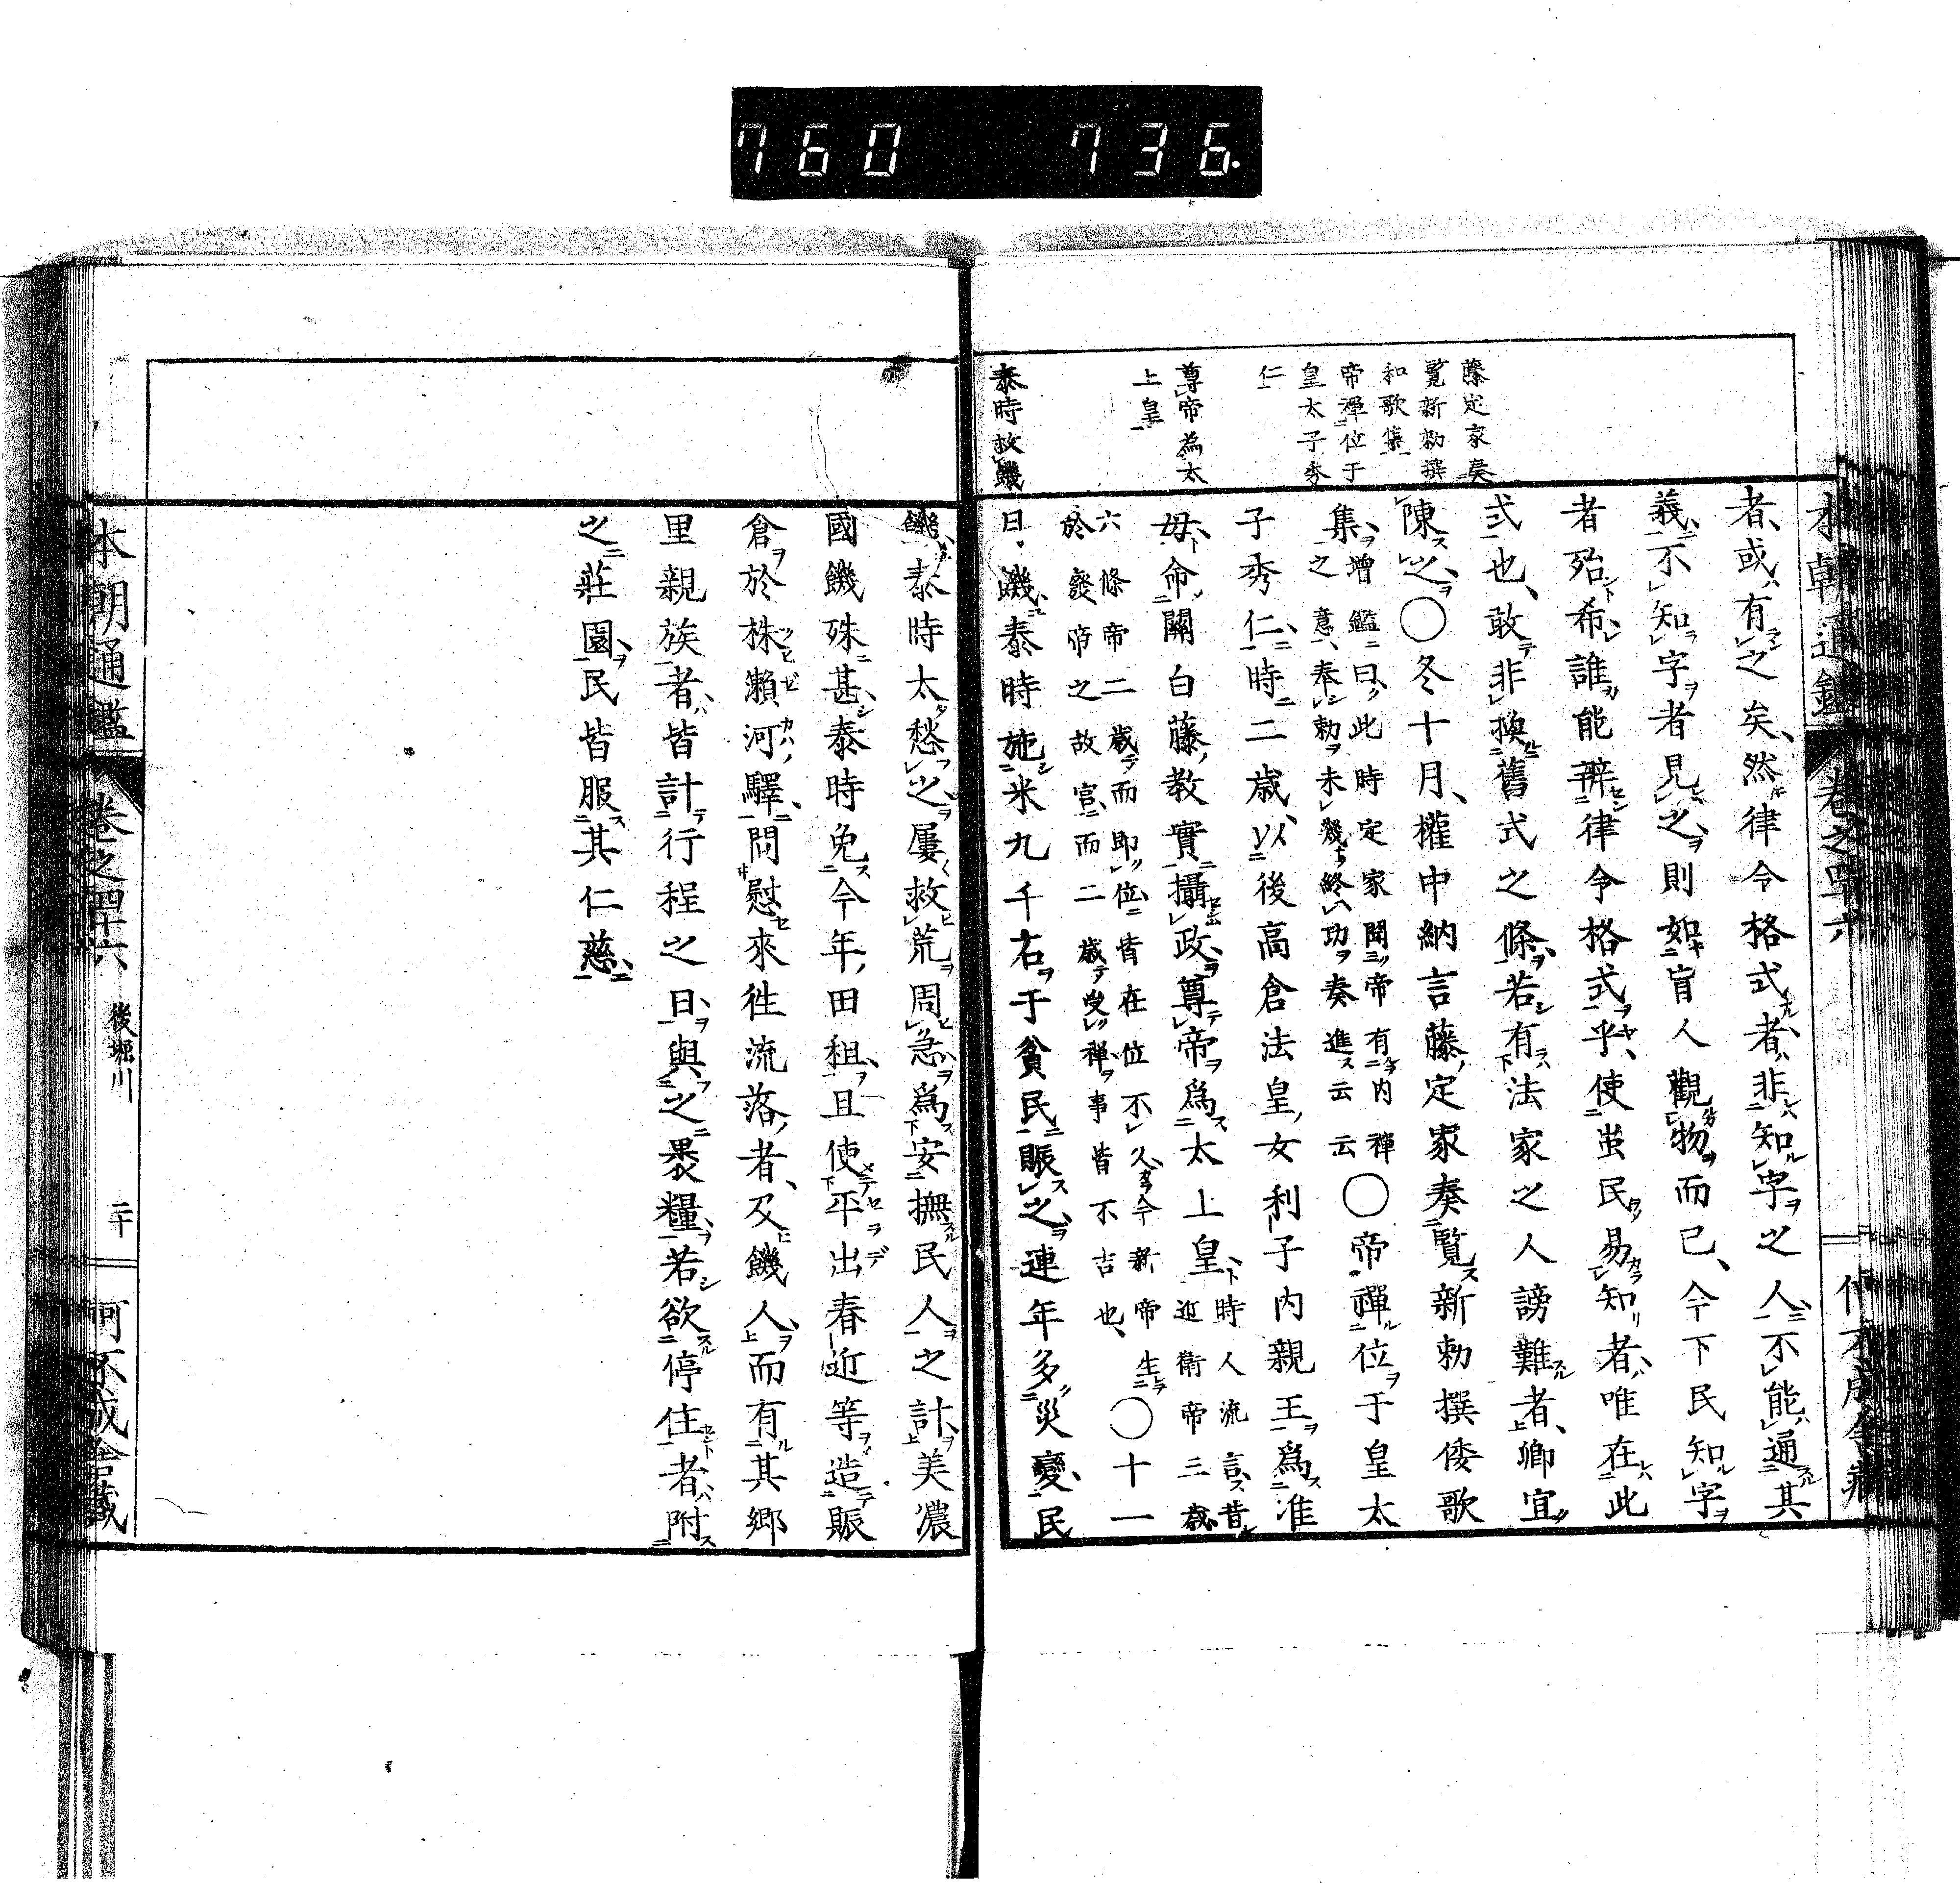 760 736.
藤定家奏
覧新勅撰
和歌集
帝禪位于
皇太子秀
仁
尊帝為太
上皇
泰時救饑
者或有之矣然律令格式者非知字之人不能通其
義不知字者見之則如盲人觀物而已今下民知字
者殆希誰能辨律令格式乎使蚩民易知者唯在此
式也敢非換舊式之條若有法家之人謗難者卿宜
陳之〇冬十月權中納言藤定家奏覧新勅撰倭歌
集增鑑曰此時定家聞帝有内禪
之意奉勅未幾終功奏進云云〇帝禪位于皇太
子秀仁時二歳以後高倉法皇女利子内親王爲准
母命關白藤教實攝政尊帝爲太上皇時人流言昔
近衛帝三歳
六條帝二歳而即位皆在位不久今新帝生
於廢帝之故宮而二歳受禪事皆不吉也〇十一
日饑泰時施米九千石于貧民賑之連年多災變民
饑泰時太愁之屢救荒周急爲安撫民人之計美濃
國饑殊甚泰時免今年田租且使平出春近等造賑
倉於株瀬河驛問慰來徃流落者及饑人而有其郷
里親族者皆計行程之日與之褁糧若欲停住者附
之莊園民皆服其仁慈
本朝通鑑 卷之四十六 後堀川 二十